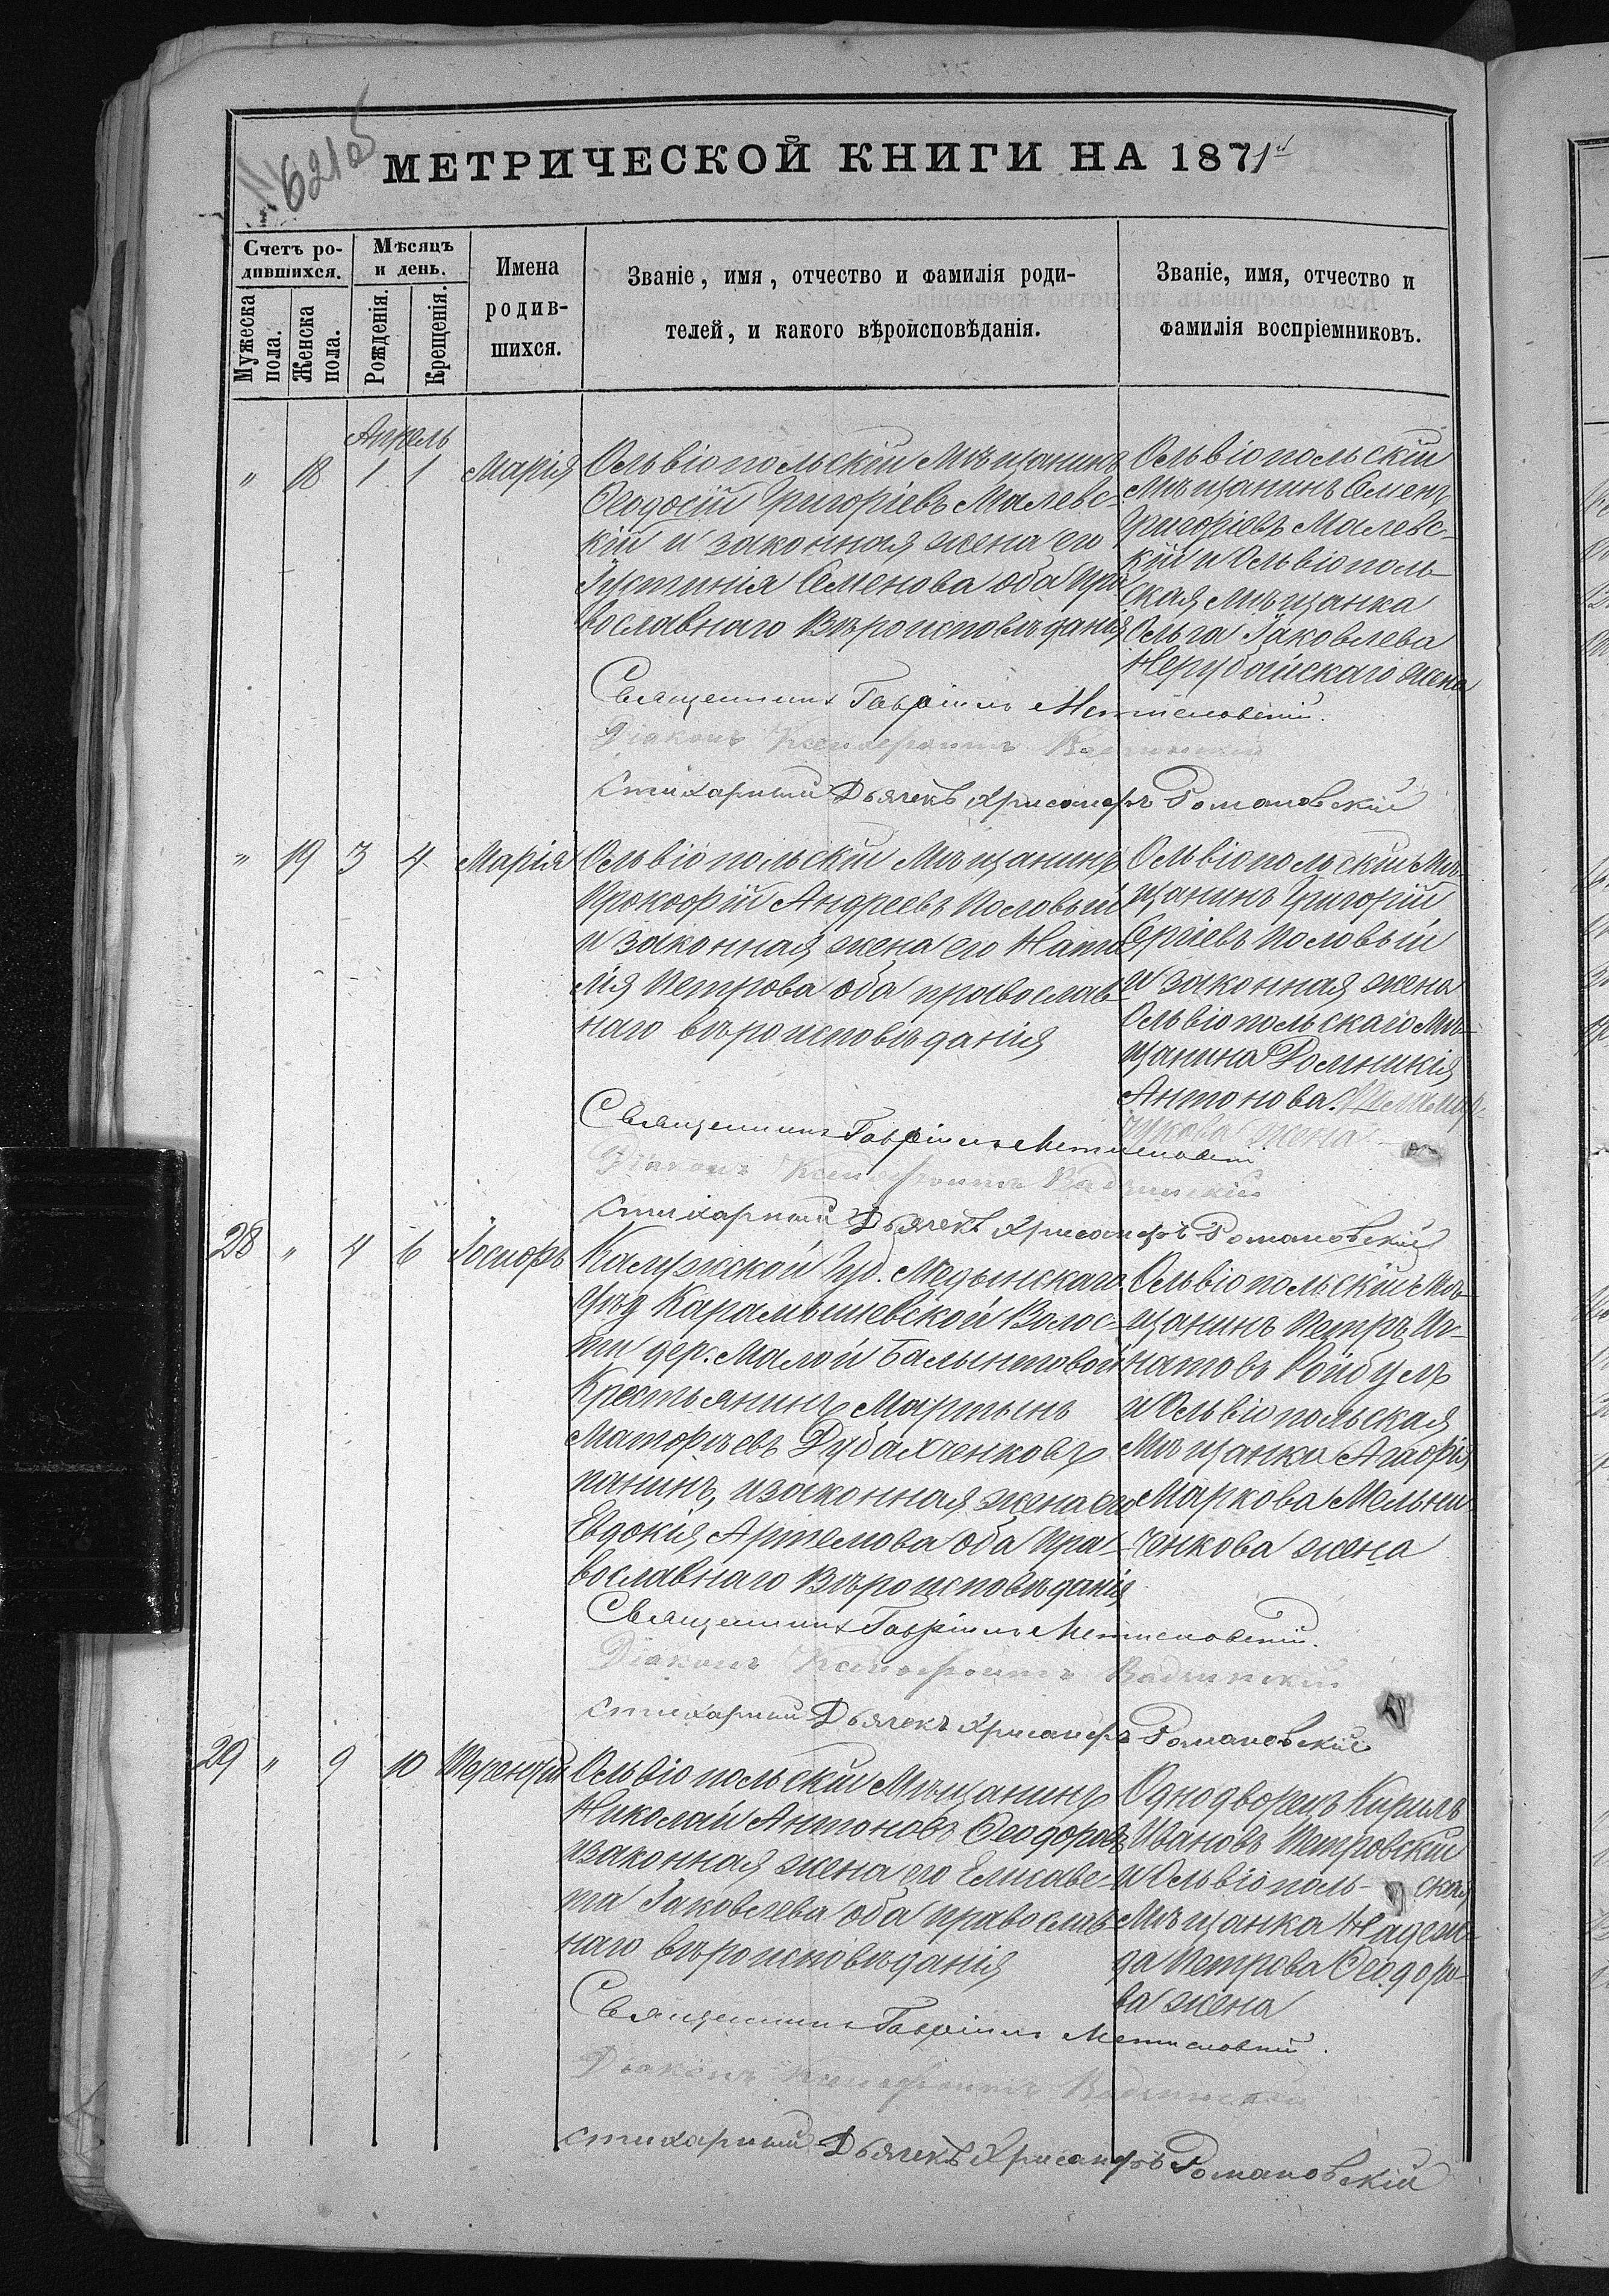 № 621об
МЕТРИЧЕСКОЙ КНИГИ НА 1871й
Счетъ ро-
дившихся.
Мѣсяцъ
и день.
Мужеска
пола.
Женска
пола.
Рожденія.
Крещенія.
Имена
родив-
шихся.
Званіе, имя, отчество и фамилія роди-
телей, и какого вѣроисповѣданія.
Званіе, имя, отчество и
фамилія воспріемниковъ.
Апрель
" 18 1 1 Марія
Ольвіопольскій Мѣщанинъ
Ѳеодосій Григоріевъ Малевс-
кій и законная жена его
Іустинія Семенова оба пра
вославнаго Вѣроисповѣданія
Ольвіопольскій
Мѣщанинъ Семенъ
Григоріевъ Малевс-
кій и Ольвіополь-
ская мѣщанка
Ольга Яковлева
Нерубайскаго жена
Священникъ Гавріилъ
Діаконъ Ксенофонтъ
Стихарный Дьячекъ Хрисанфъ Романовскій
" 19 3 4 Марія
Ольвіопольскій Мѣщанинъ
Прокофій Андреевъ Половый
и законная жена его Ната
лія Петрова оба православ-
наго вѣроисповѣданія
Ольвіопольскій Мѣ-
щанинъ Григорій
Сргіевъ Половый
и законная жена
Ольвіопольскаго Мѣ-
щанина Домникія
Антонова
жена
Священникъ Гавріилъ
Діаконъ Ксенофонтъ
Стихарный Дьячекъ Хрисанфъ Романовскій
28 " 4 6 Іосифъ
Калужской Губ. Медынскаго
уѣзд Карамышевской Волос-
ти дер. Малой
Крестьянинъ Мартынъ
Матфѣевъ
изаконная жена его
Евдокія Артемова оба пра-
вославнаго Вѣроисповѣданія
Ольвіопольскій Мѣ-
щанинъ Петръ Иг-
натовъ Ройбулъ
и Ольвіопольская
Мѣщанка Агафія
Маркова Мельни
ченкова жена
Священникъ Гавріилъ
Діаконъ Ксенофонтъ
Стихарный Дьячекъ Хрисанфъ Романовскій
29 " 9 10 Терентій
Ольвіопольскій Мѣщанинъ
Николай Антоновъ Ѳеодоровъ
изаконная жена его Елисаве-
та Іаковлева оба православ
наго вѣроисповѣданія
Однодворецъ Кирилъ
Ивановъ Петровскій
и Ольвіополь- ская
Мѣщанка Надеж-
да Петрова Ѳеодоро-
ва жена
Священникъ Гавріилъ
Діаконъ Ксенофонтъ
Стихарный Дьячекъ Хрисанфъ Романовскій